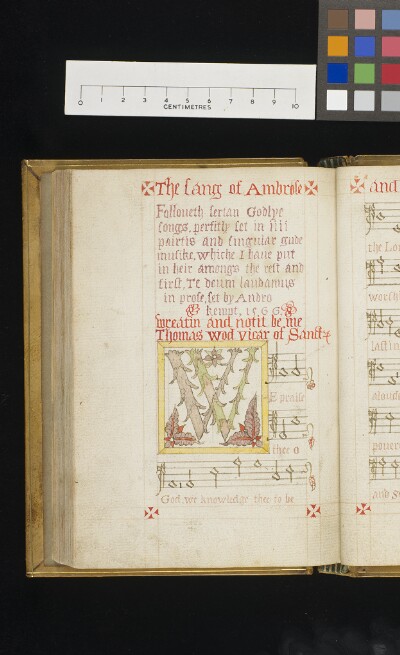 0 1 2 3 4 5 6 7 8 9 10
CENTIMETRES
The sang of Ambrose
Followeth sertan Godlye
songs, perfitly set in iiii
pairtis and singular gude
musike, whiche I haue put
in heir amongs the rest and
first, Te deum laudamus
in prose, set by Andro
kempt, 1566
wreatin and notit be me
Thomas Wod vicar of Sanct
W
E praise
thee o
God we knowledge thee to be
and
the Lo
worsh
all
pouer
and